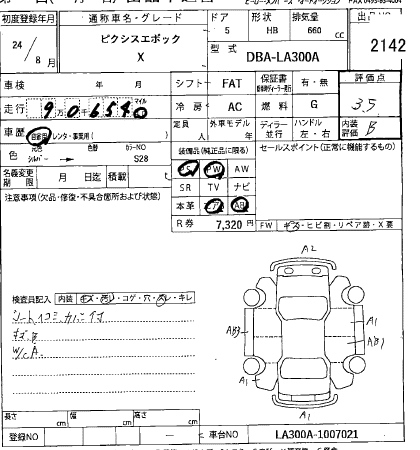 初度登録年月 通称車名・グレード ドア 形状 排気量
24 / 8 月 ピクシスエポック 5 HB 660 cc
X 型式 DBA-LA300A 2142
車検 年 月 シフト FAT 保証書 有・無 評価点
走行 9万06540 マイル 冷房 AC 燃料 G 3.5
車歴 自家用 レンタ・事業用( ) 定員 人 外車モデル ディーラー 並行 ハンドル 左・右 内装評価 B
色 元色 シルバー → 色替 カラーNO S28 装備品(純正品に限る) セールスポイント(正常に機能するもの)
名義変更期限 月 日迄 積載 PS PW AW
SR TV ナビ
注意事項(欠品・修復・不具合箇所および状態) 本革 エア AB
R券 7,320 円 FW キズ・ヒビ割・リペア跡・X要
検査員記入 内装 キズ・汚レ・コゲ・穴・スレ・キレ
キズB
W/C A
A2
AB1 A1
AB1
A1
A1
長さ cm 幅 cm 高さ cm
登録NO — 車台NO LA300A-1007021